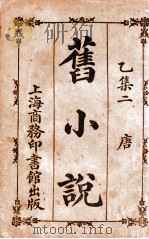 乙集二　唐
舊小說
上海商務印書館出版